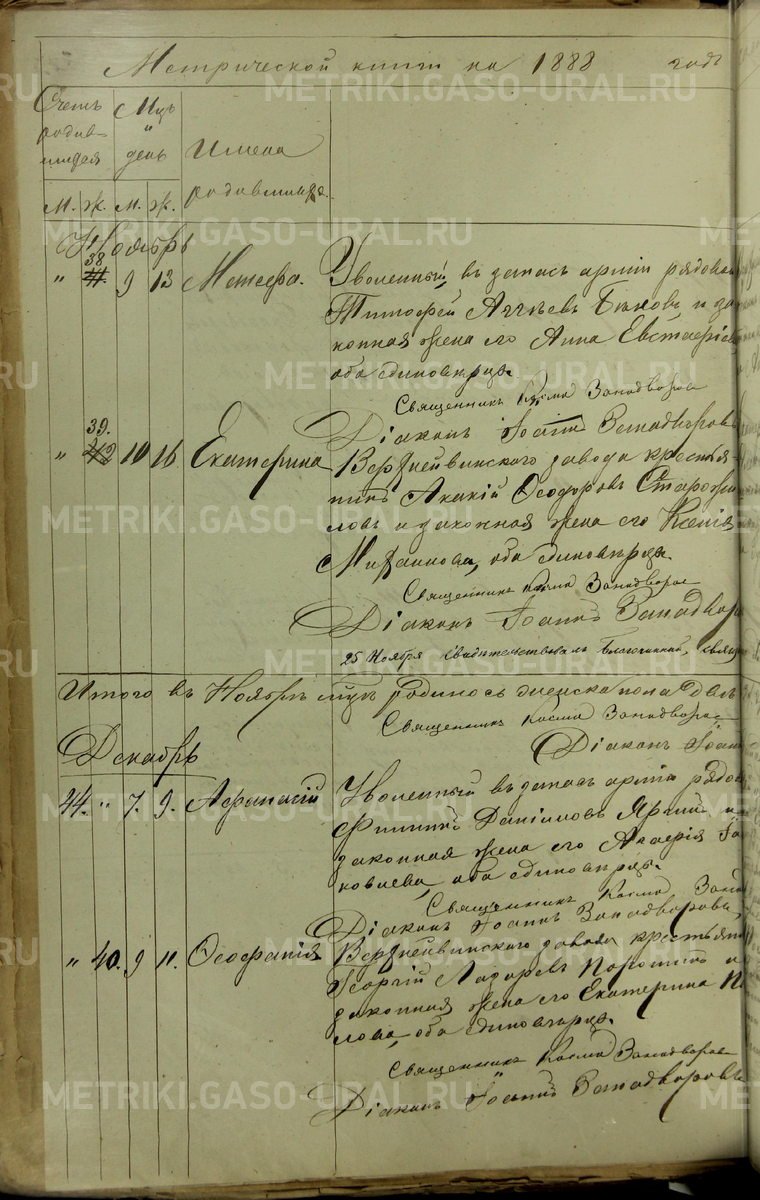 Метрической книги на 1888 годъ
Счетъ родив-
шихся
Мцъ и день
Имена родившихся.
М. Ж. М. Ж.
Ноябрь
" 38 9 13 Меѳодія
Уволенный въ запасъ арміи рядовой
Тимоѳей Аггѣевъ Быковъ и за-
конная жена его Анна Евстафіев
оба единовѣрцы.
Священникъ Косма Западворов
Діаконъ Іоаннъ Западворовъ
" 39. 10 16 Екатерина
Верхнейвинскаго завода крестья-
нинъ Акакій Ѳеодоровъ Старожи-
ловъ и законная жена его Ксенія
Михаилова, оба единовѣрцы.
Священникъ Косма Западворов
Діаконъ Іоаннъ Западвор
25 Ноября свидѣтельствовалъ Благочинный, свящ
Итого въ Ноябрѣ мцѣ родилось женска пола двѣ
Священникъ Косма Западворов
Діаконъ Іоан
Декабрь
44. " 7. 9. Аѳанасій
Уволенный въ запасъ арміи рядов
Филиппъ Даніиловъ и
законная жена его Іа
ковлева, оба единовѣрцы.
Священникъ Косма Запад
Діаконъ Іоаннъ Западворовъ
" 40. 9 11. Ѳеофанія
Верхнейвинскаго завода крестьяни
Георгій Лазаревъ Порошинъ и
законная жена его Екатерина Па
лова, оба единовѣрцы.
Священникъ Косма Западворов
Діаконъ Іоаннъ Западворовъ
METRIKI.GASO-URAL.RU